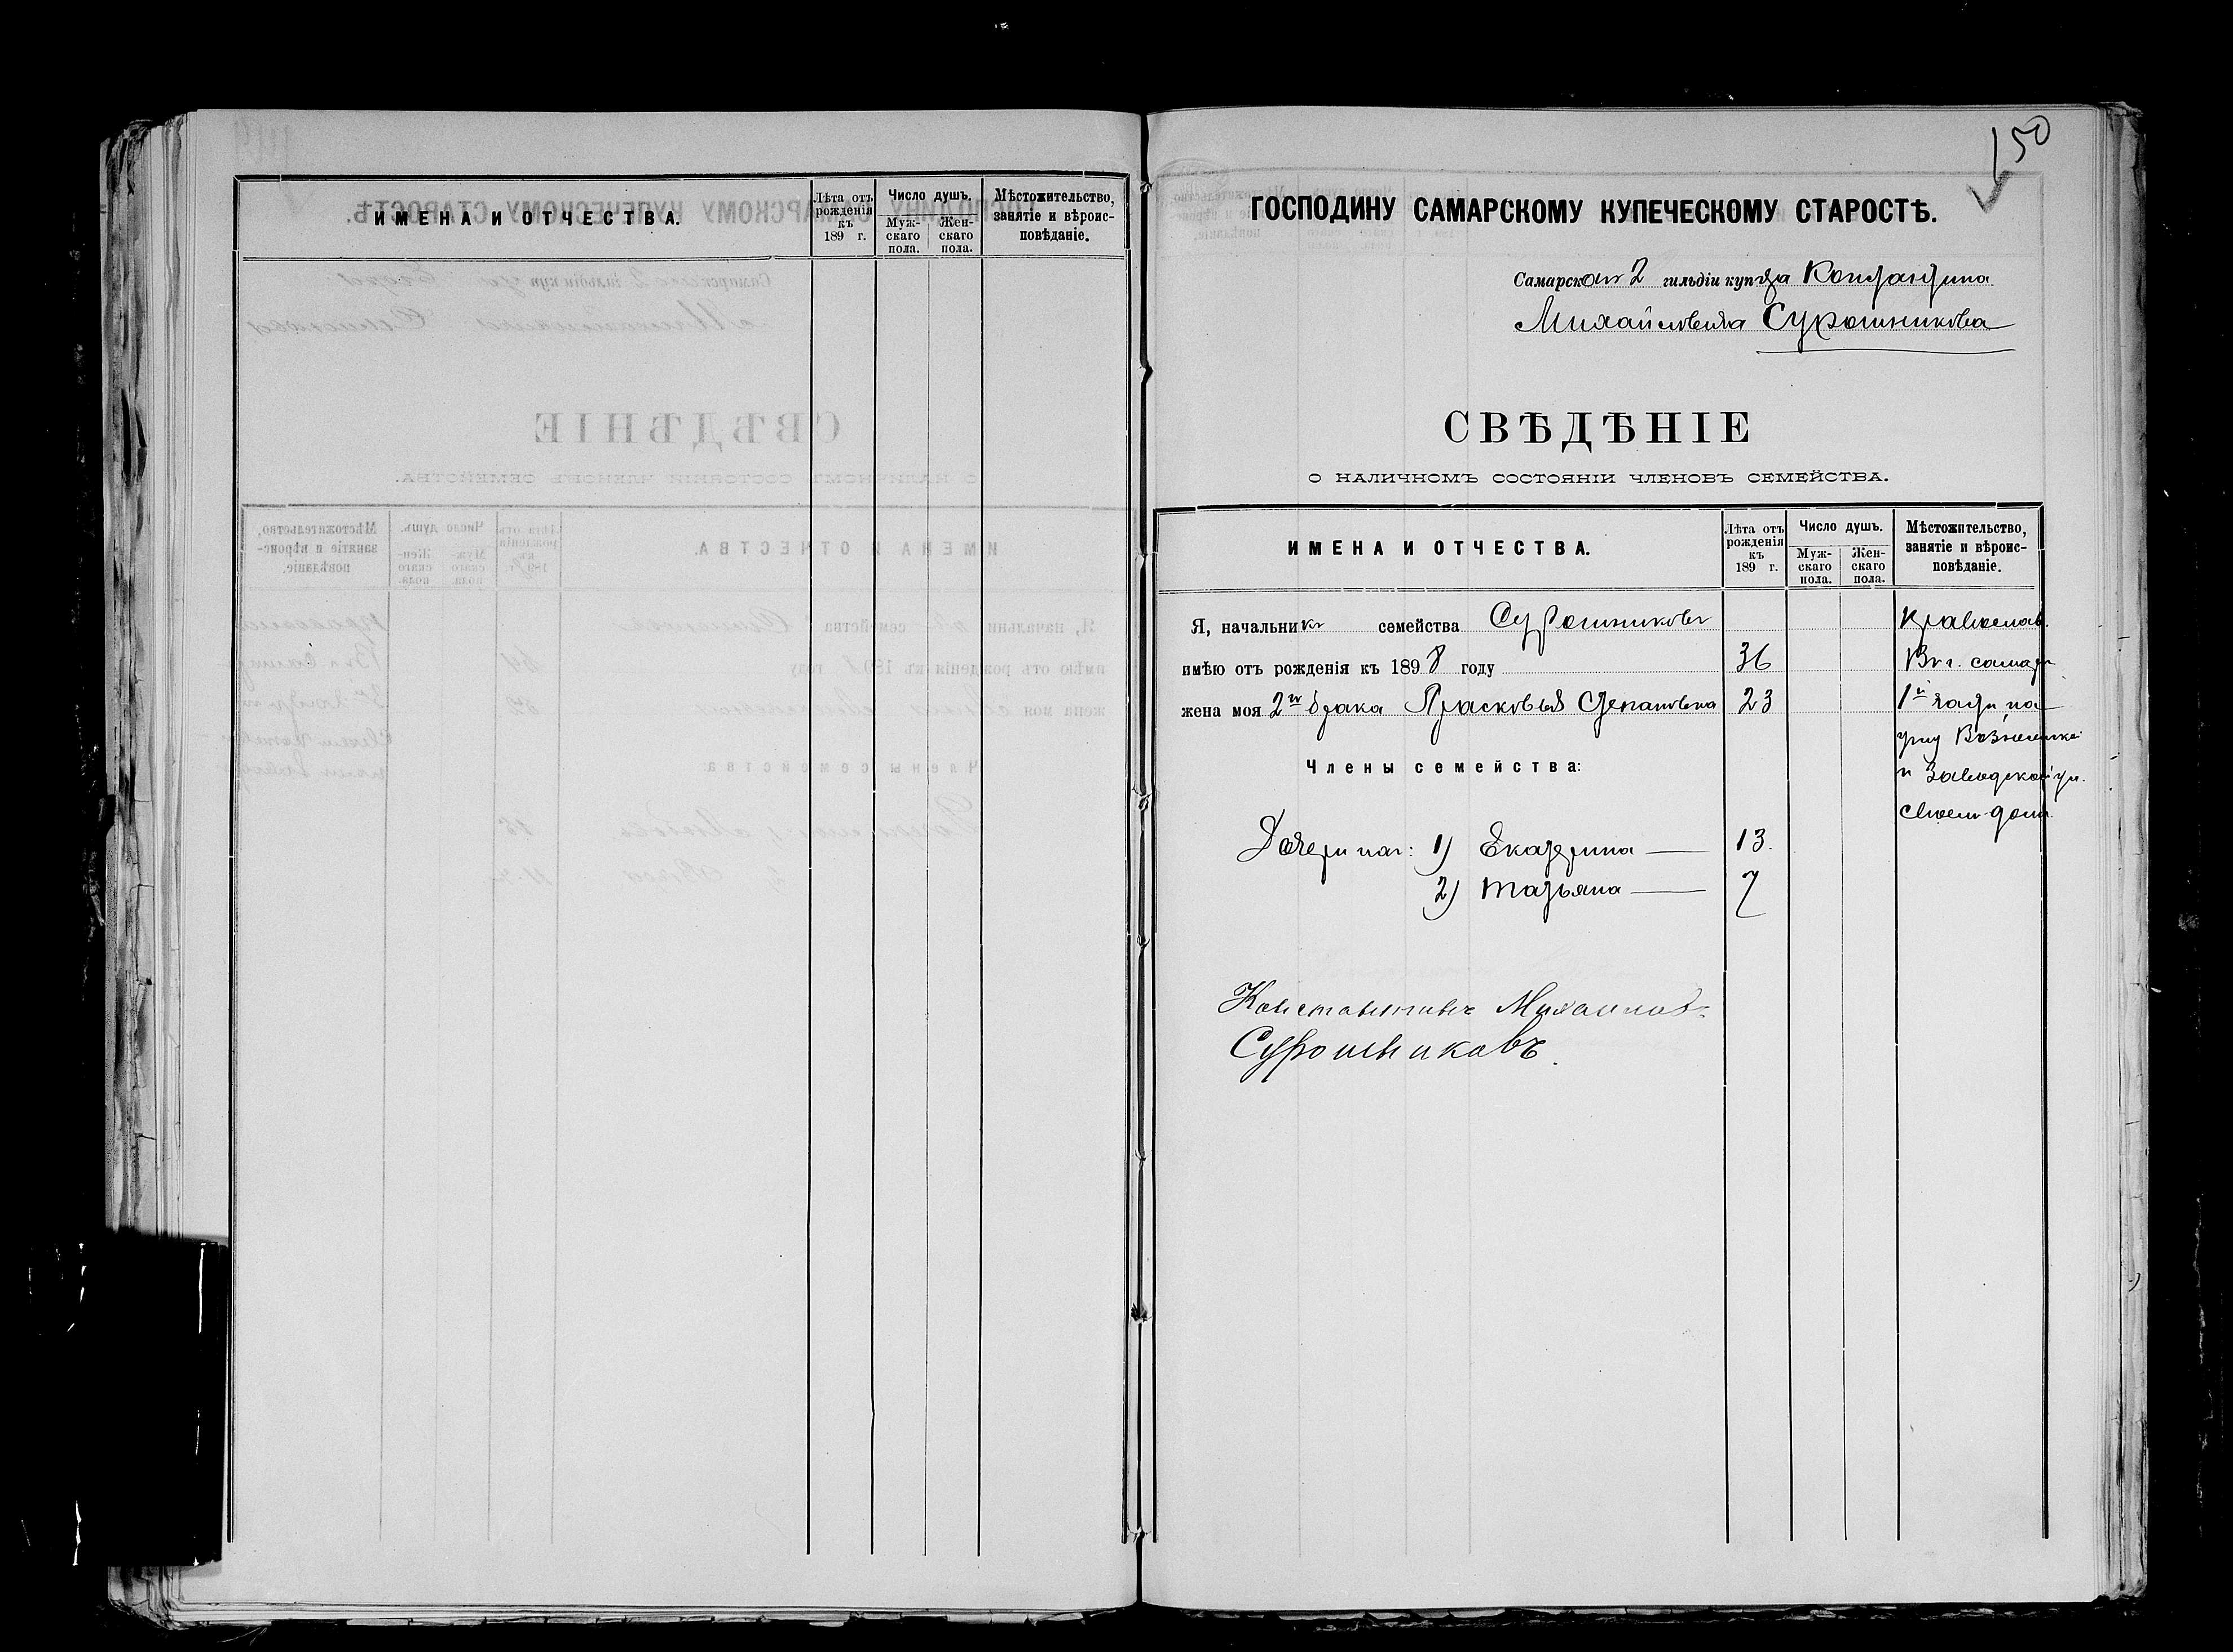 ИМЕНА И ОТЧЕСТВА.
Лѣта отъ рожденія къ 189 г.
Число душъ.
Мужскаго пола.
Женскаго пола.
Мѣстожительство, занятіе и вѣроисповѣданіе.
150
ГОСПОДИНУ САМАРСКОМУ КУПЕЧЕСКОМУ СТАРОСТѢ.
Самарскаго 2 гильдіи купца Константина
Михайловича Сурошникова
СВѢДѢНІЕ
О НАЛИЧНОМЪ СОСТОЯНІИ ЧЛЕНОВЪ СЕМЕЙСТВА.
ИМЕНА И ОТЧЕСТВА.
Лѣта отъ рожденія къ 189 г.
Число душъ.
Муж-
скаго
пола.
Жен-
скаго
пола.
Мѣстожительство,
занятіе и вѣроис-
повѣданіе.
Я, начальникъ семейства Сурошниковъ Православ.
имѣю отъ рожденія къ 1898 году 36 Въ г. Самарѣ
жена моя 2го брака Прасковья Степановна 23 1й части, на
углу Вознесенской
Члены семейства:
и Заводской ул.
своем домѣ
Дочери наши: 1) Екатерина — 13.
2) Татьяна — 7
Константинъ Михайлов
Сурошниковъ.